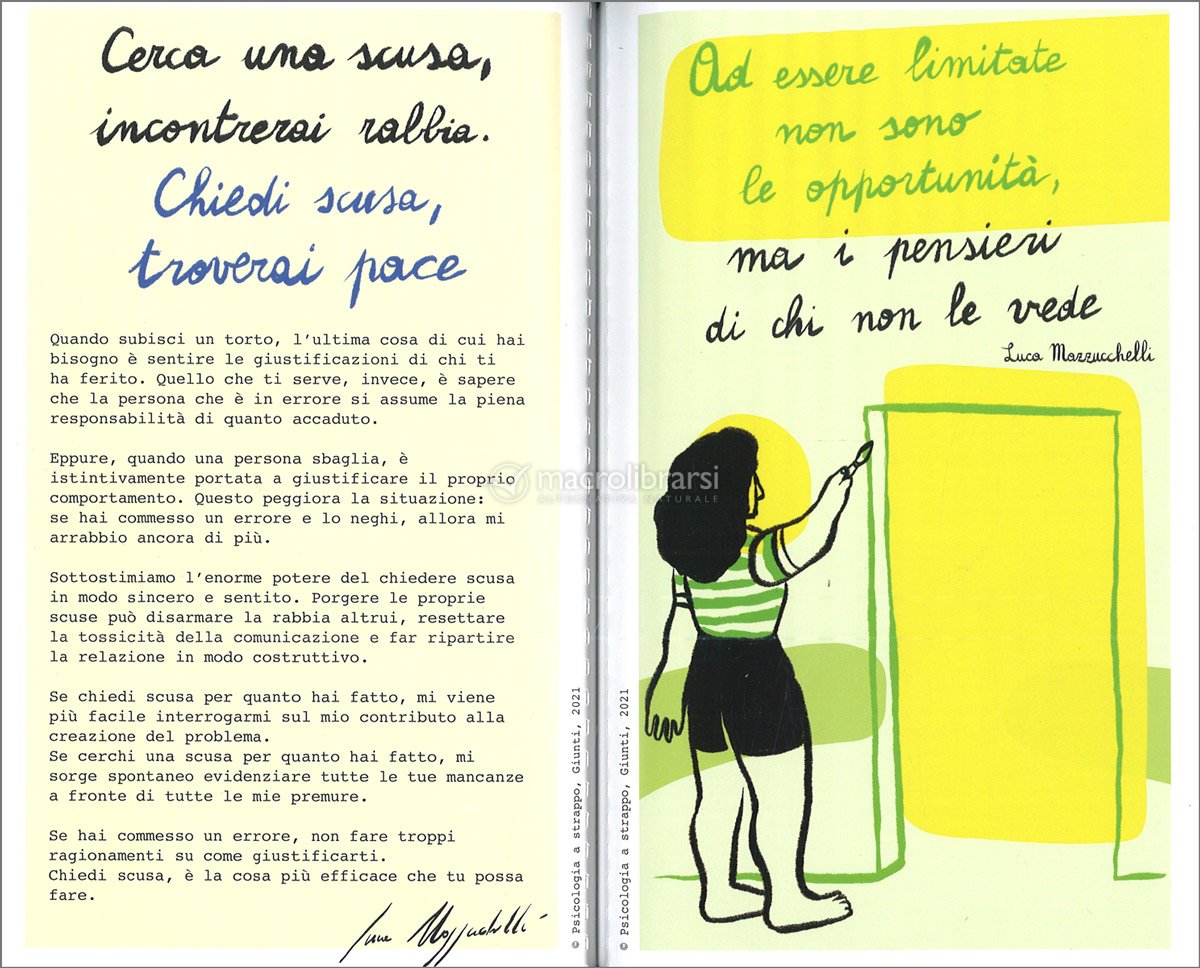 Cerca una scusa,
incontrerai rabbia.
Chiedi scusa,
troverai pace
Quando subisci un torto, l'ultima cosa di cui hai
bisogno è sentire le giustificazioni di chi ti
ha ferito. Quello che ti serve, invece, è sapere
che la persona che è in errore si assume la piena
responsabilità di quanto accaduto.
Eppure, quando una persona sbaglia, è
istintivamente portata a giustificare il proprio
comportamento. Questo peggiora la situazione:
se hai commesso un errore e lo neghi, allora mi
arrabbio ancora di più.
Sottostimiamo l'enorme potere del chiedere scusa
in modo sincero e sentito. Porgere le proprie
scuse può disarmare la rabbia altrui, resettare
la tossicità della comunicazione e far ripartire
la relazione in modo costruttivo.
Se chiedi scusa per quanto hai fatto, mi viene
più facile interrogarmi sul mio contributo alla
creazione del problema.
Se cerchi una scusa per quanto hai fatto, mi
sorge spontaneo evidenziare tutte le tue mancanze
a fronte di tutte le mie premure.
Se hai commesso un errore, non fare troppi
ragionamenti su come giustificarti.
Chiedi scusa, è la cosa più efficace che tu possa
fare.
Luca Mazzucchelli
© Psicologia a strappo, Giunti, 2021
Ad essere limitate
non sono
le opportunità,
ma i pensieri
di chi non le vede
Luca Mazzucchelli
© Psicologia a strappo, Giunti, 2021
macrolibrarsi
ALTERNATIVA NATURALE